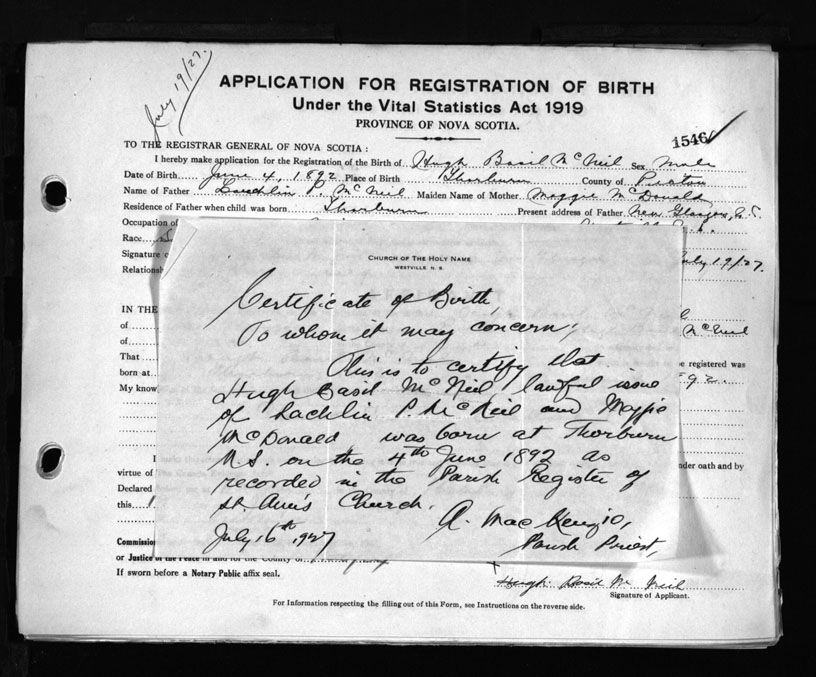 July 19/27.
APPLICATION FOR REGISTRATION OF BIRTH
Under the Vital Statistics Act 1919
PROVINCE OF NOVA SCOTIA.
1546
TO THE REGISTRAR GENERAL OF NOVA SCOTIA :
I hereby make application for the Registration of the Birth of Hugh Basil McNeil Sex Male
Date of Birth June 4, 1892 Place of Birth Thorburn County of Pictou
Name of Father Lauchlin P. McNeil Maiden Name of Mother Maggie McDonald
Residence of Father when child was born Thorburn Present address of Father New Glasgow, N.S.
Occupation of
Race
Signature July 19/27.
Relationsh
CHURCH OF THE HOLY NAME
WESTVILLE, N. S.
Certificate of Birth,
To whom it may concern;
This is to certify that
Hugh Basil McNeil, lawful issue
of Lachlin P. McNeil and Maggie
McDonald was born at Thorburn
N.S. on the 4th June 1892 as
recorded in the Parish Register of
St. Ann's Church.
A. MacKenzie,
July 16th, 1927 Parish Priest,
IN THE
of McNeil
of
That be registered was
born at
My know
I nder oath and by
virtue of
Declared
this
Commissio
or Justice of the Peace in and for the County of
If sworn before a Notary Public affix seal.
Hugh Basil McNeil
Signature of Applicant.
For Information respecting the filling out of this Form, see Instructions on the reverse side.